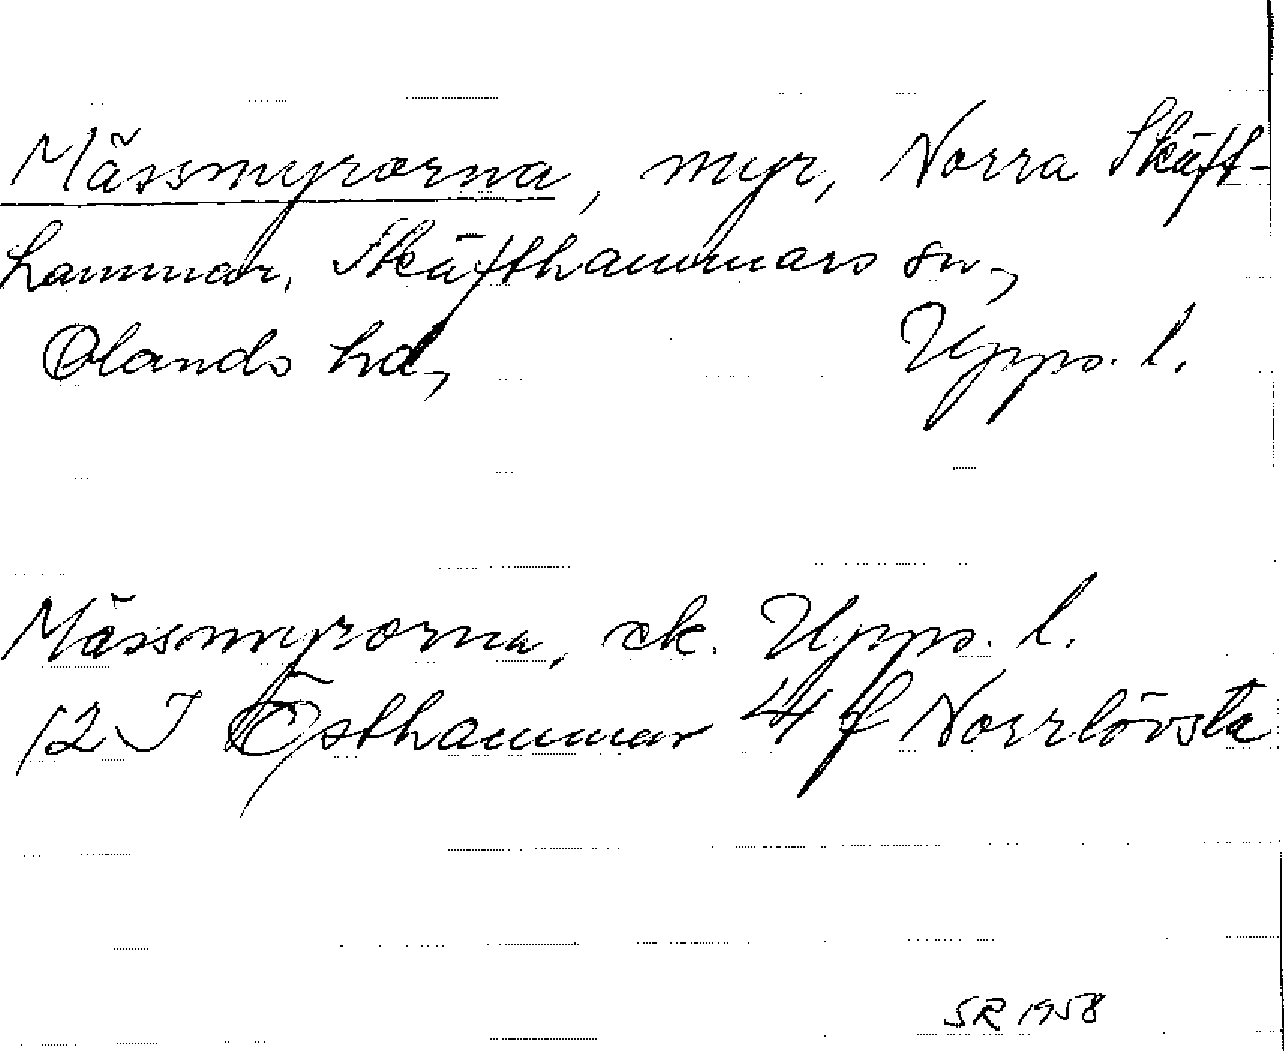 Mässmyrorna, myr, Norra Skäft-
hammar, Skäfthammars sn,
Olands hd, Upps. l.
Mässmyrorna, ek. Upps. l.
12 I Östhammar 4 f Norrlövsta
SR 1958